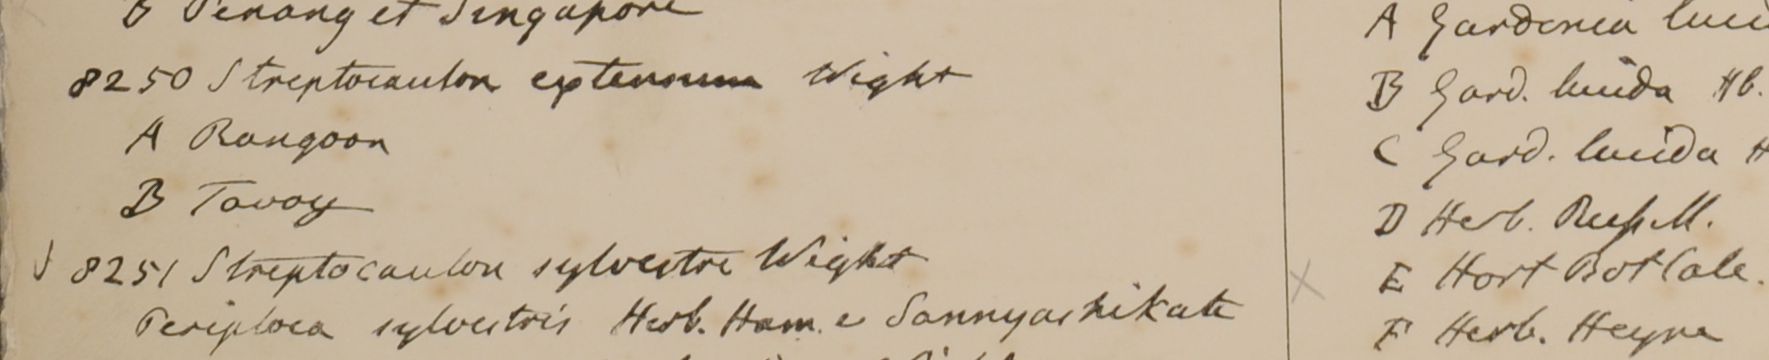 B Penang et Singapore
8250 Streptocaulon extensum Wight
A Rangoon
B Tavoy
8251 Streptocaulon sylvestre Wight
Periploca sylvestris Herb. Ham. e Sannyashikata
A Gardenia luci
B Gard. lucida Hb.
C Gard. lucida H
D Herb. Russell.
E Hort Bot Calc.
F Herb. Heyne